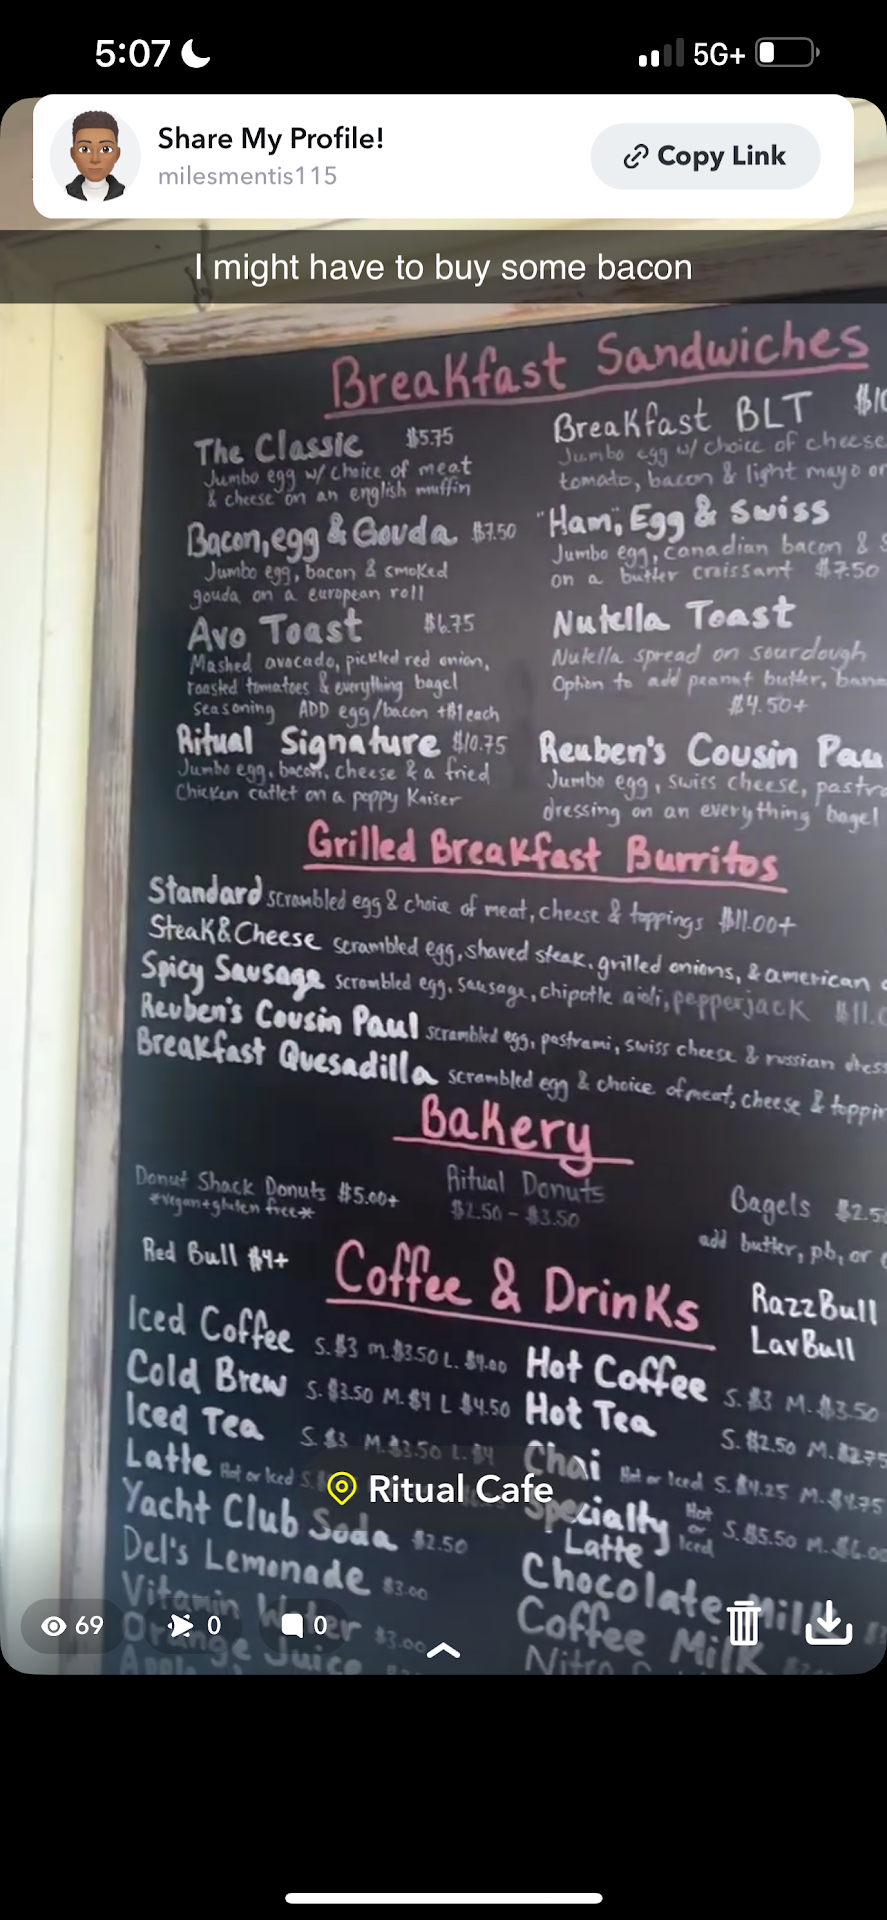 5:07
5G+
Share My Profile!
milesmentis115
Copy Link
I might have to buy some bacon
Breakfast Sandwiches
The Classic $5.75
Jumbo egg w/ choice of meat
& cheese on an english muffin
Bacon, egg & Gouda $7.50
Jumbo egg, bacon & smoked
gouda on a european roll
Avo Toast $6.75
Mashed avocado, pickled red onion,
roasted tomatoes & everything bagel
Seasoning ADD egg/bacon +$1 each
Ritual Signature $10.75
Jumbo egg, bacon, cheese & a fried
Chicken cutlet on a poppy Kaiser
Breakfast BLT
Jumbo egg w/ choice of cheese
tomato, bacon & light mayo on
"Ham", Egg & Swiss
Jumbo egg, canadian bacon &
on a butter croissant $7.50
Nutella Toast
Nutella spread on sourdough
Option to add peanut butter,
$4.50+
Reuben's Cousin
Jumbo egg, swiss cheese,
dressing on an everything bagel
Grilled Breakfast Burritos
Standard scrambled egg & choice of meat, cheese & toppings $11.00+
Steak&Cheese scrambled egg, shaved steak, grilled onions, & american
Spicy Sausage scrambled egg, sausage, chipotle aioli, pepperjack
Reuben's Cousin Paul scrambled egg, pastrami, swiss cheese & russian
Breakfast Quesadilla scrambled egg & choice of meat, cheese &
Bakery
Donut Shack Donuts $5.00+
*vegan+gluten free*
Ritual Donuts
$2.50 - $3.50
Bagels
add butter, pb, or
Red Bull $4+
Coffee & Drinks
RazzBull
LavBull
Iced Coffee S. $3 M. $3.50 L. $4.00
Cold Brew S. $3.50 M. $4 L $4.50
Iced Tea S. $3 M. $3.50 L. $4
Latte Hot or Iced
Yacht Club Soda $2.50
Del's Lemonade $3.00
Vitamin Water $3.00
Orange Juice
Hot Coffee S. $3 M. $3.50
Hot Tea S. $2.50 M. $2.75
Chai Hot or Iced S. $4.25 M. $4.75
Specialty Latte Hot or Iced S. $5.50 M. $6.00
Chocolate Milk
Coffee Milk
Nitro
Ritual Cafe
69
0
0